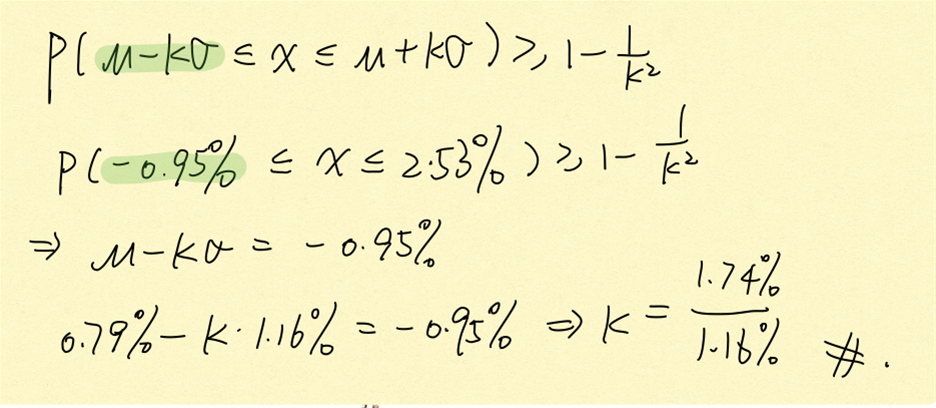 P(μ-kσ ≤ x ≤ μ+kσ) ≥ 1 - 1/k²
P(-0.95% ≤ x ≤ 2.53%) ≥ 1 - 1/k²
⇒ μ-kσ = -0.95%
0.79% - k·1.16% = -0.95% ⇒ k = 1.74%/1.16% #.